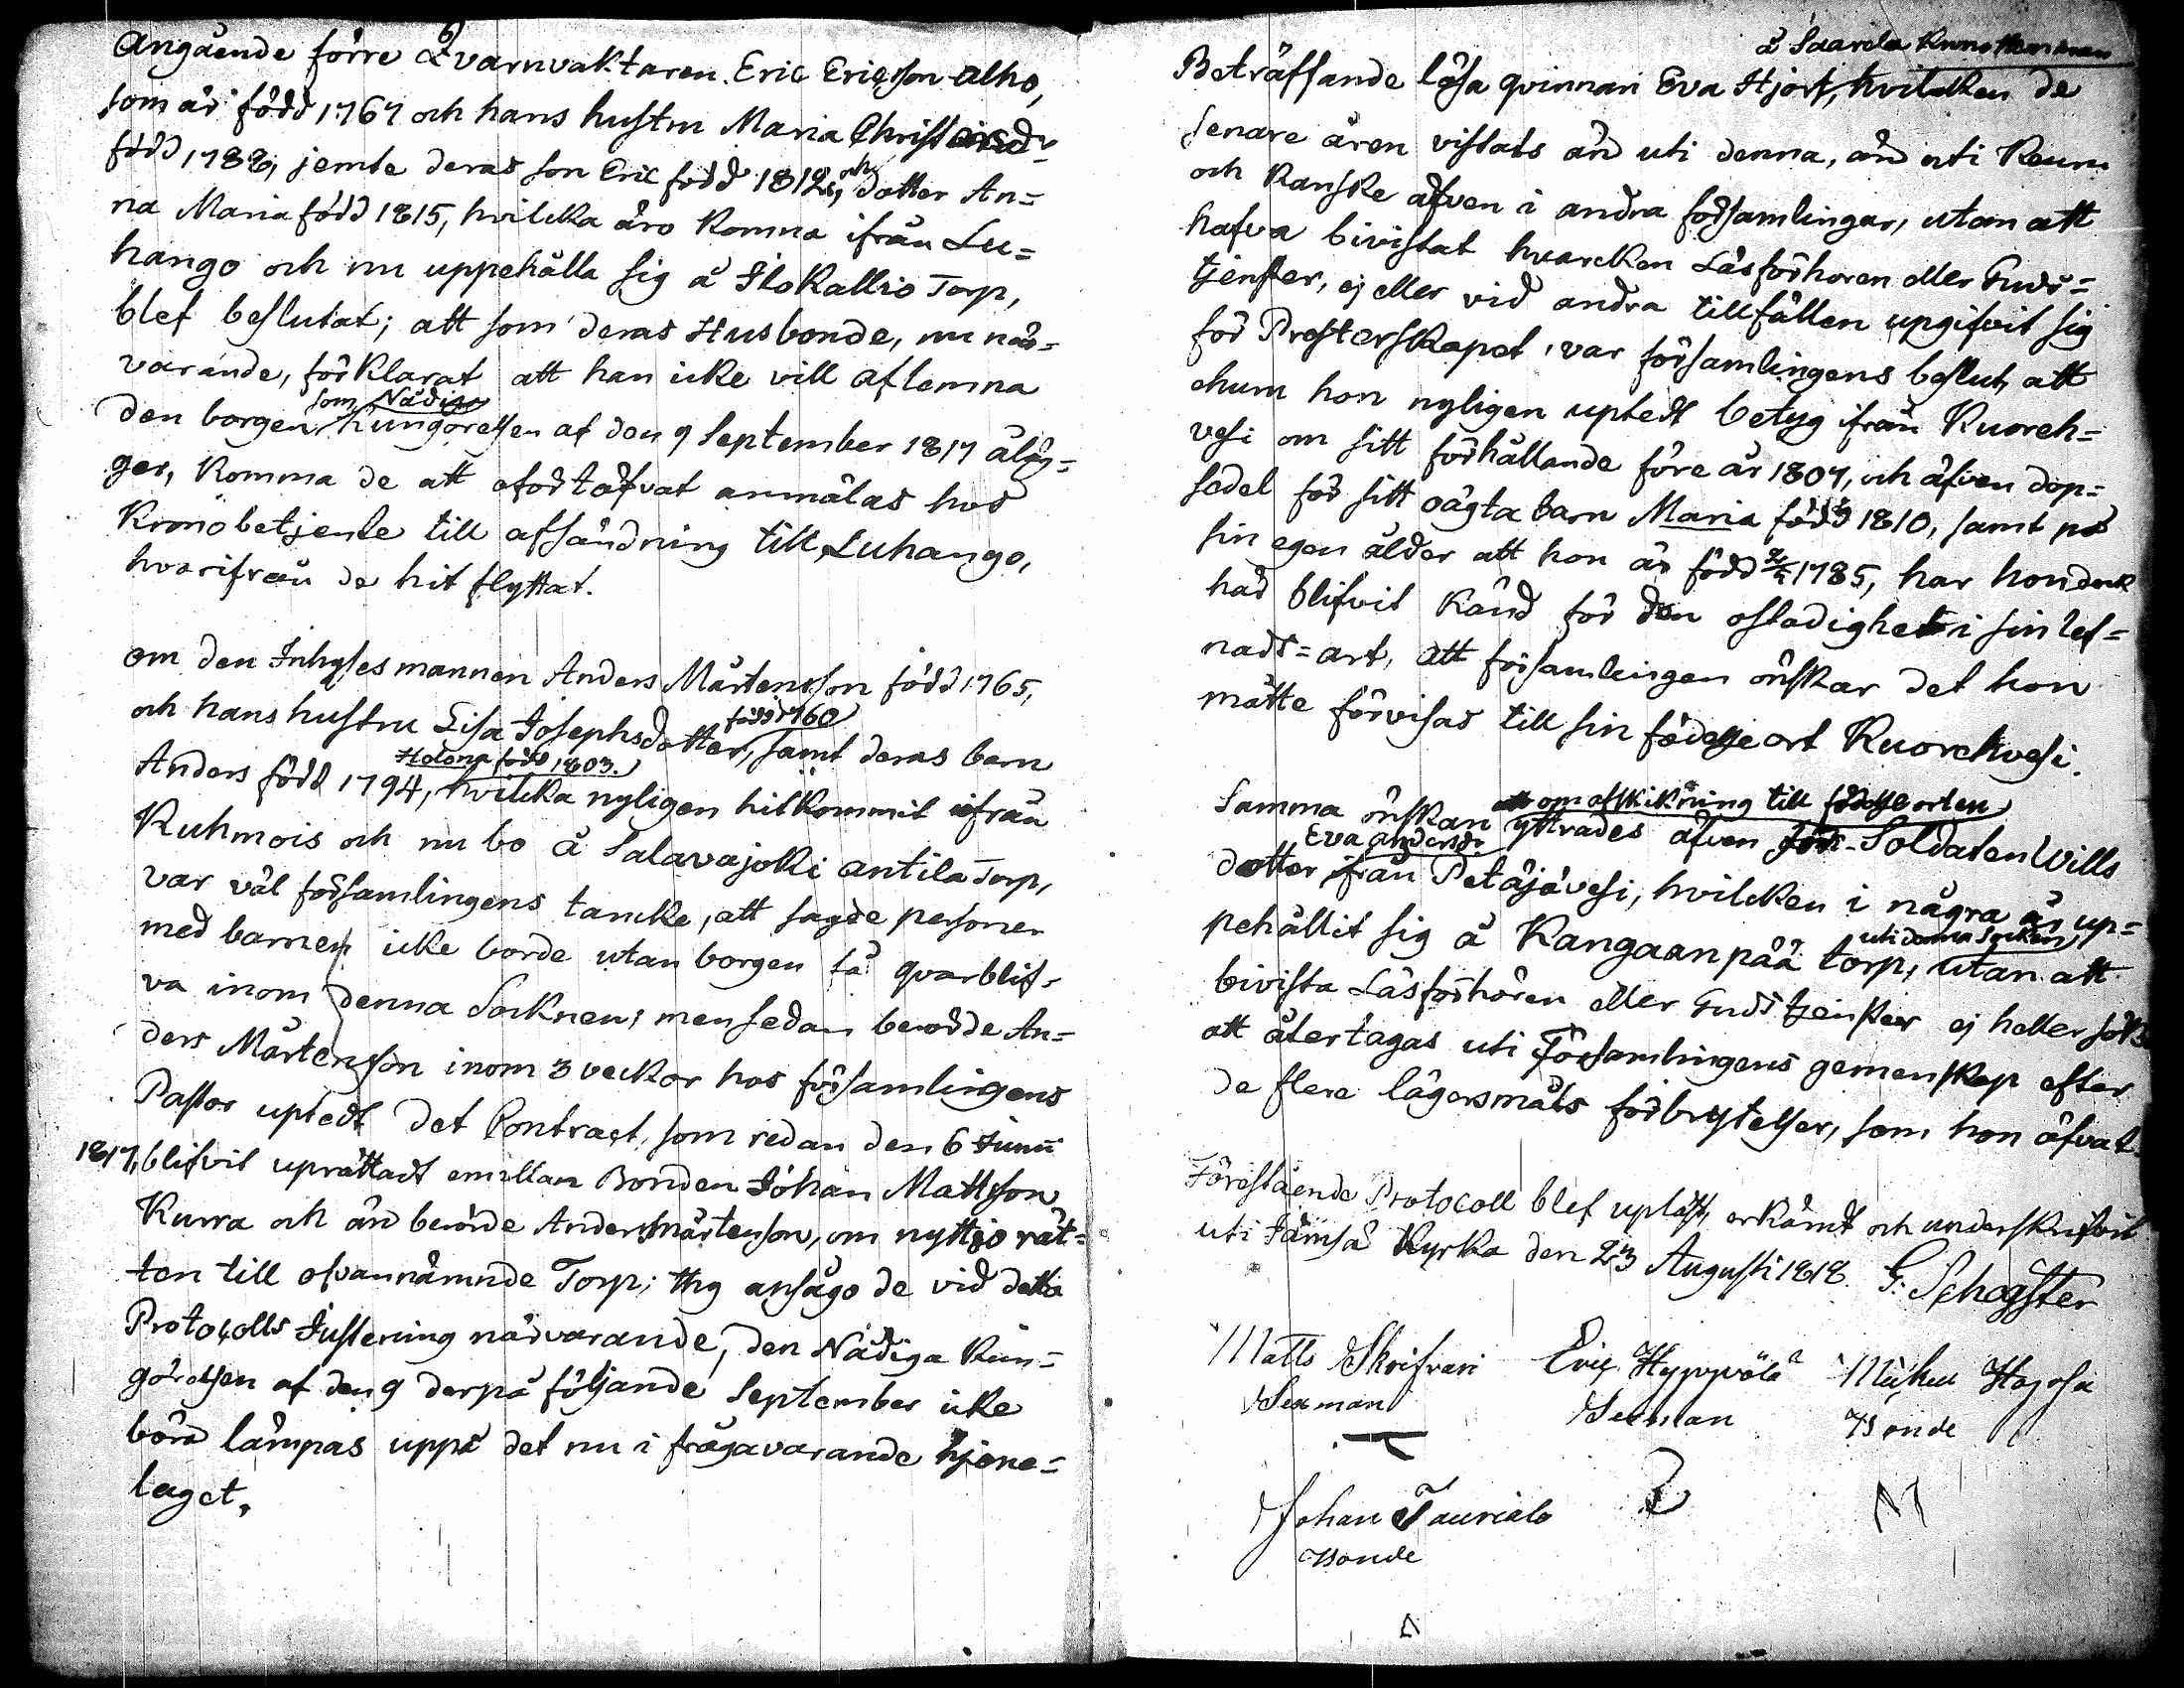 Angående förre Qvarnvaktaren Eric Ericsson Alho,
som är född 1767 och hans hustru Maria Christ
född 1788, jemte deras son Eric född 1812, och dotter An=
na Maria född 1815, hvilcka äro komna ifrån Lu=
hango och nu uppehålla sig å Ilokallio Torp,
blef beslutat; att som deras Husbonde, nu när=
varande, förklarat att han icke vill aflemna
som Nådiga
den borgen Kungörelsen af den 9 September 1817 åläg=
ger, komma de att ofortöfvat anmälas hos
Kronobetjente till afsändning till Luhango,
hvarifrån de hit flyttat.
om den Inhyses mannen Anders Mårtensson född 1765,
född 1760
och hans hustru Lisa Josephsdotter, samt deras barn
Helena född 1803.
Anders född 1794, hvilcka nyligen hitkommit ifrån
Kuhmois och nu bo å Salavajoki Antila Torp,
var väl församlingens tancke, att sagde personer
med barnen icke borde utan borgen få qvarblif=
va inom denna Socknen; men sedan berörde An=
ders Mårtensson inom 3 veckor hos församlingens
Pastor uptedt det Contract, som redan den 6 Junii
1817, blifvit uprättadt emillan Bonden Johan Mattsson
Kurra och än berörde Anders Mårtensson, om nyttjo rät=
ten till ofvannämnde Torp; thy ansågo de vid detta
Protocolls Justering närvarande, den Nådiga Kun=
görelsen af den 9 derpå följande September icke
böra lämpas uppå det nu i frågavarande hjone=
laget.
å Saarela
Beträffande lösa qvinnan Eva Hjort, hvilcken de
senare åren vistats än uti denna, än uti Keuru
och kanske äfven i andra församlingar, utan att
hafva bivistat hvarcken Läsförhören eller Guds=
tjenster, ej eller vid andra tillfällen upgifvit sig
för Presterskapet, var församlingens beslut, att
ehuru hon nyligen uptedt betyg ifrån Kuoreh=
vesi om sitt förhållande före år 1807, och äfven dop=
sedel för sitt oägta barn Maria född 1810, samt på
sin egen ålder att hon är född 1785, har hon dock
här blifvit känd för den ostadighet i sin lef=
nads=art, att församlingen önskar det hon
måtte förvisas till sin födelse ort Kuorehvesi.
om afskickning till födelse orten
Samma önskan yttrades äfven Soldaten Wills
Eva Andersdr
dotter ifrån Petäjävesi, hvilcken i några år up=
uti denna Socken
pehållit sig å Kangaanpää torp, utan att
bivista Läsförhören eller Gudstjenster ej heller sökt
att återtagas uti Församlingens gemenskap efter
de flere lägersmåls förbrytelser, som hon öfvat.
Förestående Protocoll blef upläst, erkändt och underskrifvit
uti Jämsä Kyrka den 23 Augusti 1818. G: Schogster
Matts Skrifvari Eric Hyppölä Michel Hassa
Sexman Sexman Bonde
Johan Tauriala
Bonde